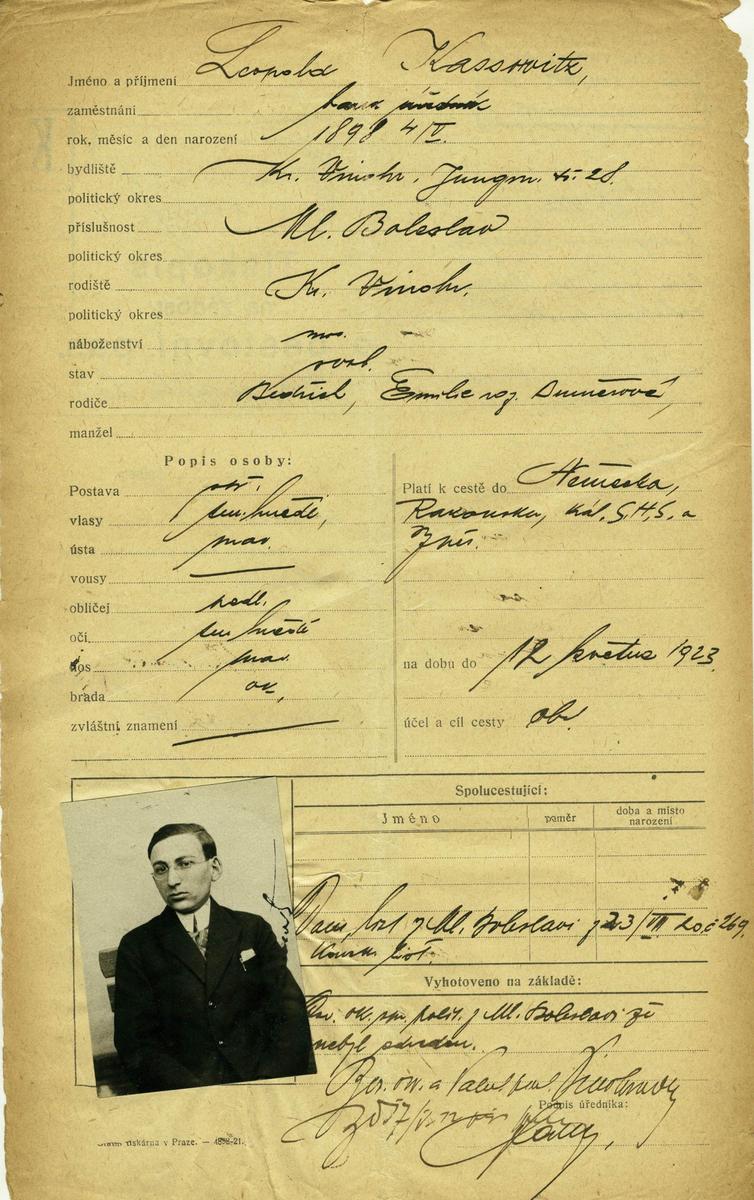 Jméno a příjmení Leopold Kassowitz,
zaměstnání bank. úředník
rok, měsíc a den narození 1898 4/IV.
bydliště Kr. Vinohr. Jungm. tř. 28.
politický okres
příslušnost Ml. Boleslav
politický okres
rodiště Kr. Vinohr.
politický okres
náboženství mos.
stav svob.
rodiče Bedřich, Emilie roz.
manžel
Popis osoby:
Postava stř.
vlasy tm. hnědé,
ústa prav.
vousy
obličej podl.
oči tm. hnědé
nos prav.
brada ov.
zvláštní znamení
Platí k cestě do Německa,
Rakouska, král. S.H.S. a
zpět.
na dobu do 12 května 1923.
účel a cíl cesty obch.
Spolucestující:
Jméno poměr doba a místo narození
Dom. list z Ml. Boleslavi z 23/VII 20 č 269,
Vyhotoveno na základě:
ok. spr. polit. z Ml. Boleslavi že
nebyl odveden.
Podpis úředníka:
tiskárna v Praze. — 4898-21.